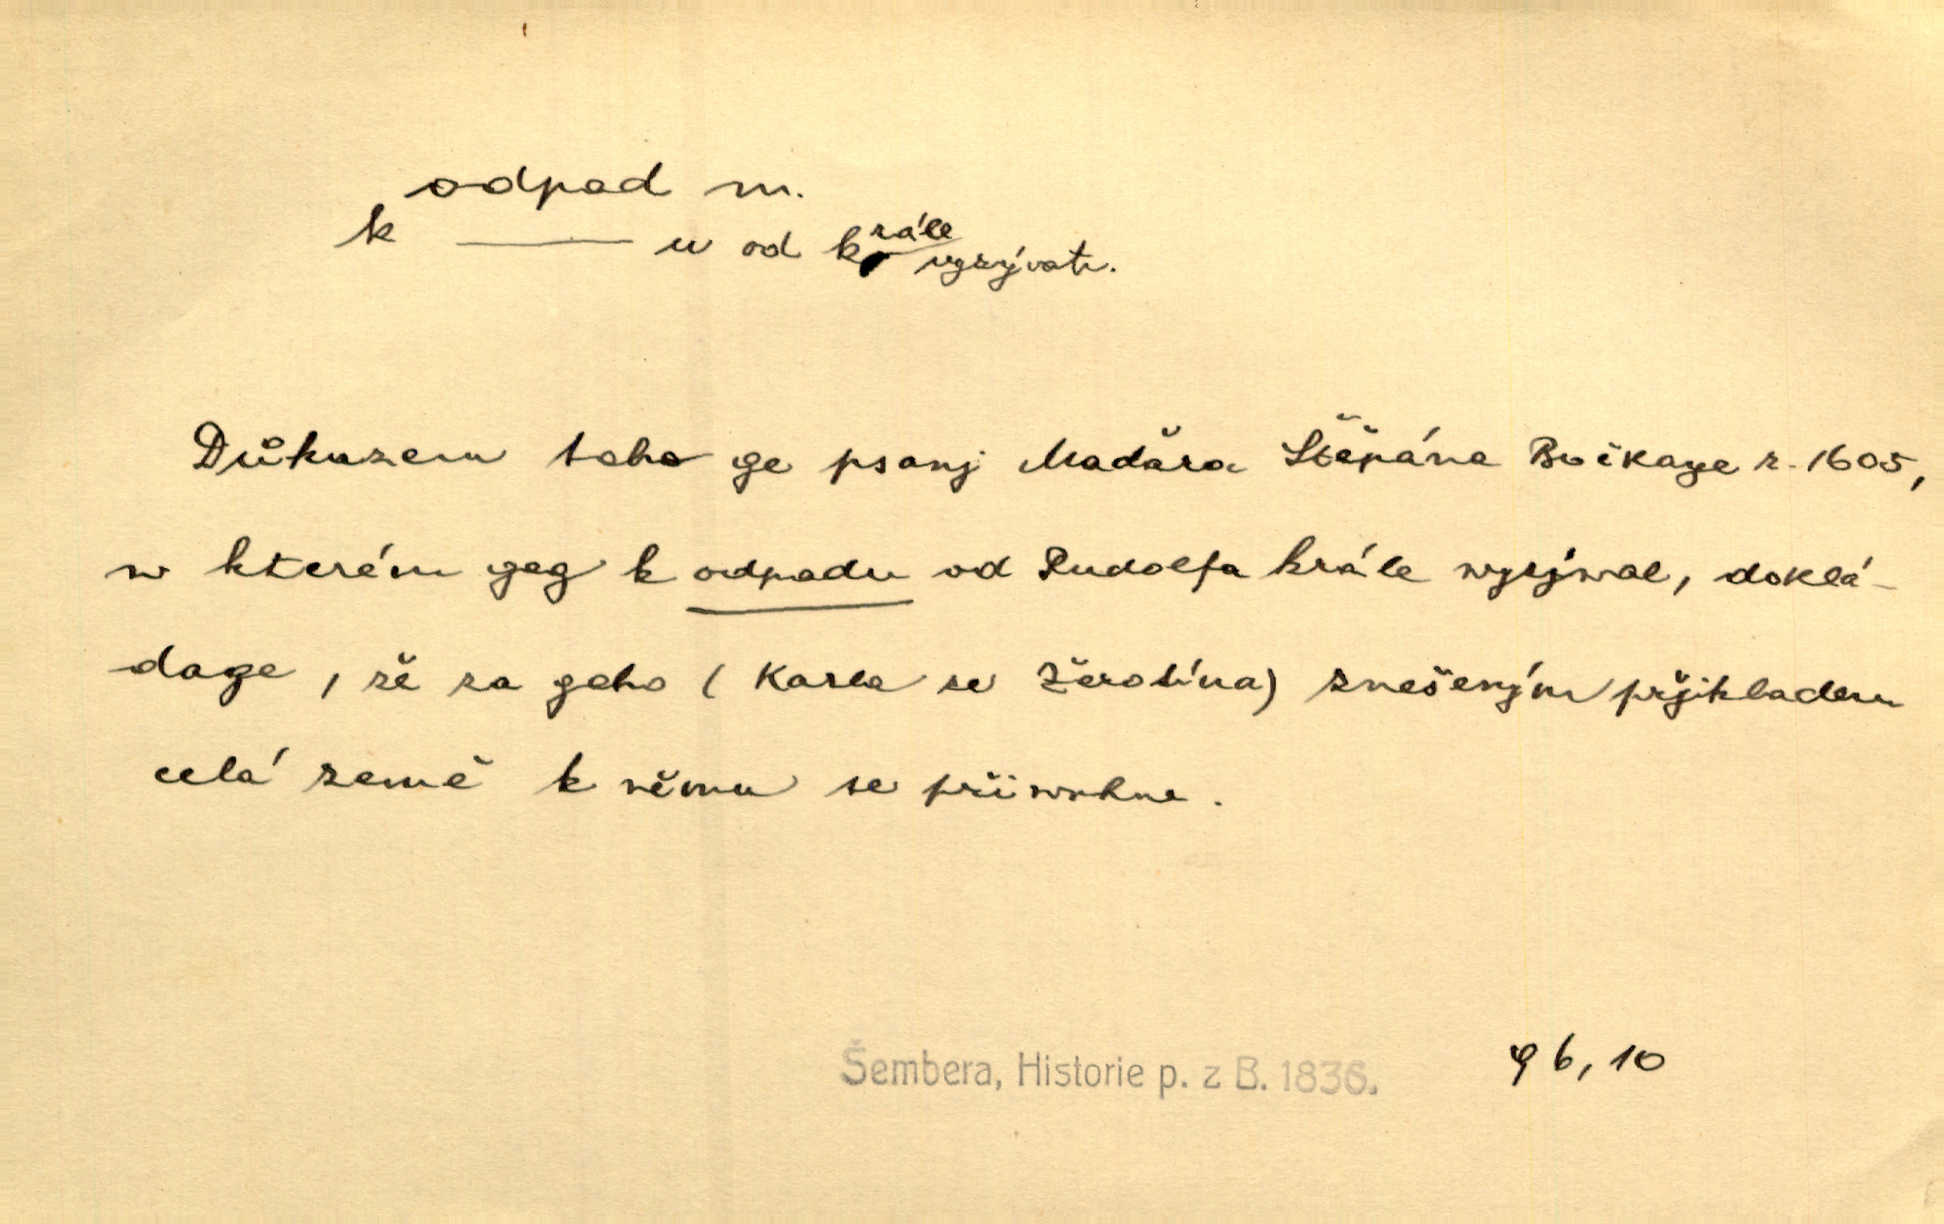 odpad m.
k ——— u od krále vyzývati.
Důkazem toho ge psanj Maďara Štěpána Bočkage r. 1605,
w kterém geg k odpadu od Rudolfa krále wyzýwal, doklá-
dage, že za geho (Karla ze Žerotína) znešeným přjkladem
celá země k němu se přiwrhne.
Šembera, Historie p. z B. 1836. 96, 10